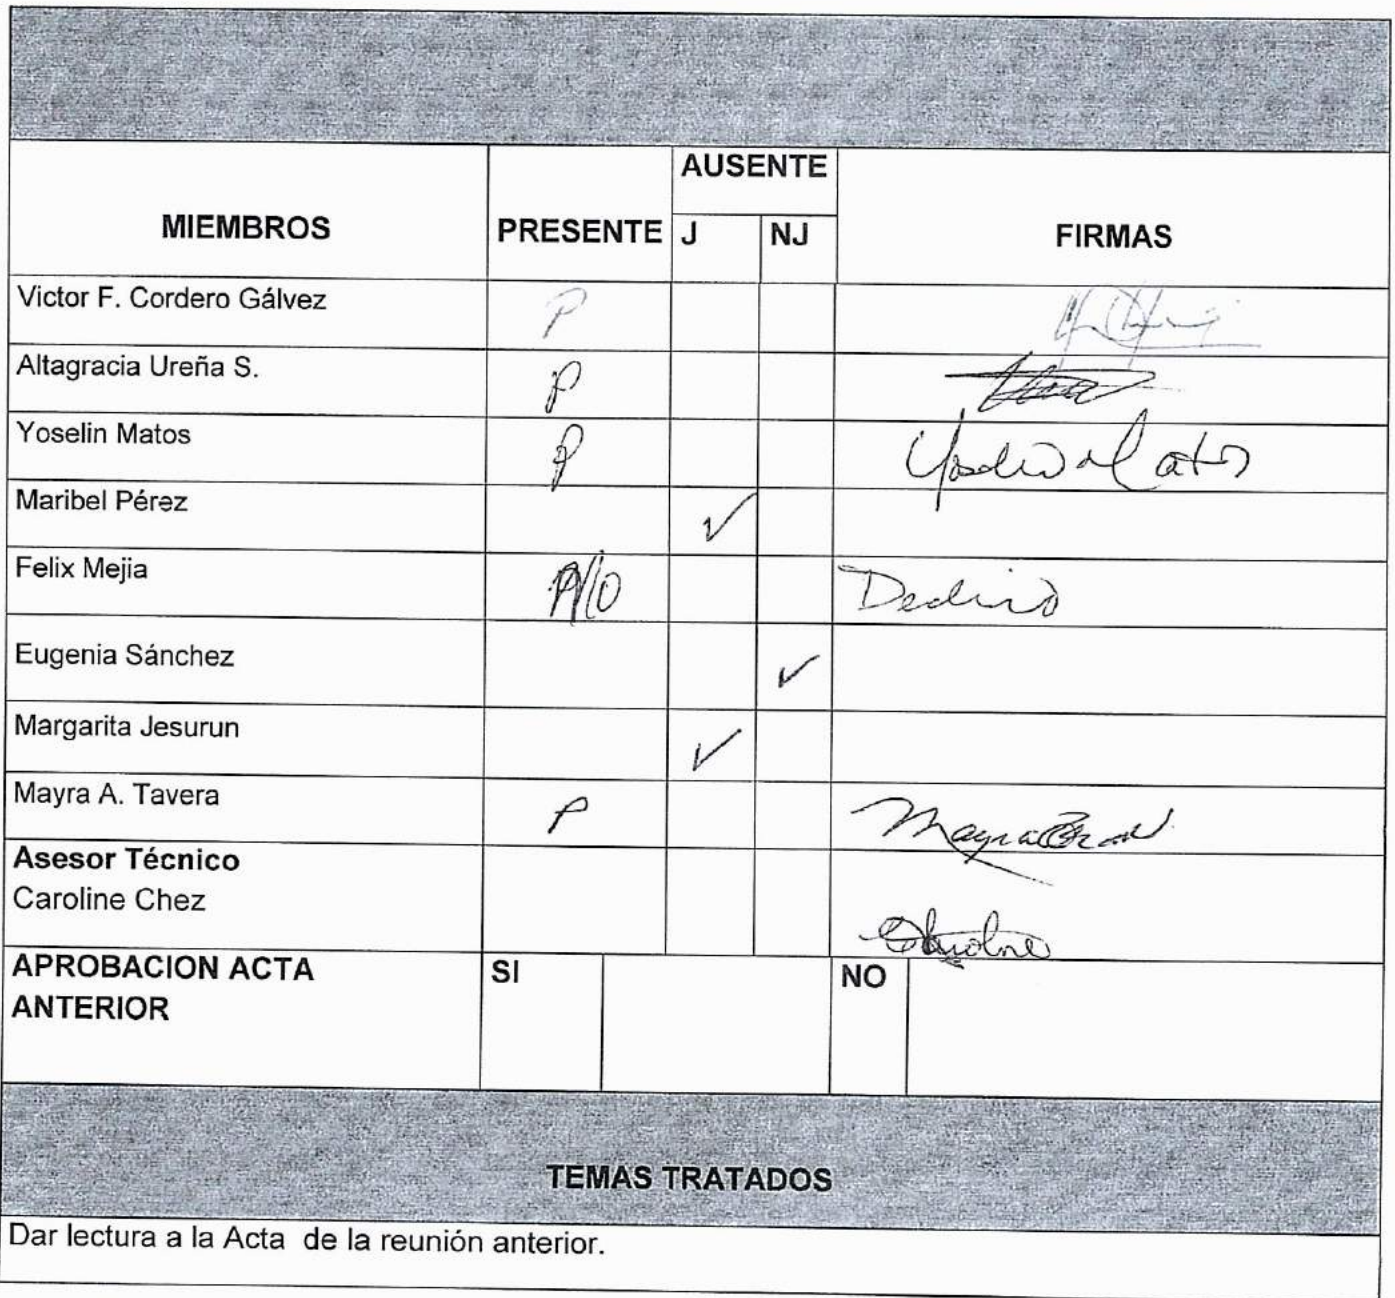 AUSENTE
MIEMBROS PRESENTE J NJ FIRMAS
Victor F. Cordero Gálvez P
Altagracia Ureña S. P
Yoselin Matos P Yoselin Matos
Maribel Pérez ✓
Felix Mejia Declinó
Eugenia Sánchez ✓
Margarita Jesurun ✓
Mayra A. Tavera P Mayra
Asesor Técnico
Caroline Chez
APROBACION ACTA SI NO
ANTERIOR
TEMAS TRATADOS
Dar lectura a la Acta de la reunión anterior.